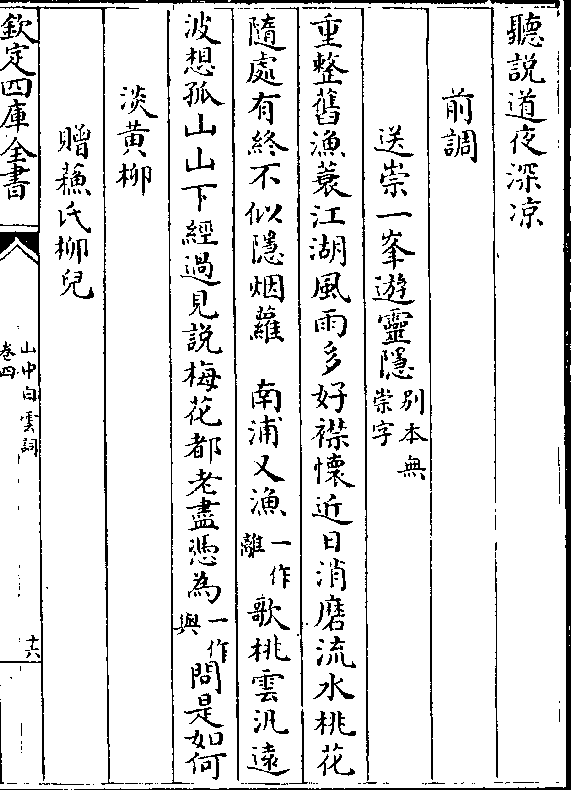 聽說道夜深凉
前調
送崇一峯遊靈隱別本無崇字
重整舊漁蓑江湖風雨多好襟懷近日消磨流水桃花
隨處有終不似隱烟蘿　南浦又漁一作離歌桃雲汎遠
波想孤山山下經過見說梅花都老盡憑為一作與問是如何
淡黃柳
贈蘓氏柳兒
欽定四庫全書
山中白雲詞
卷四
十六